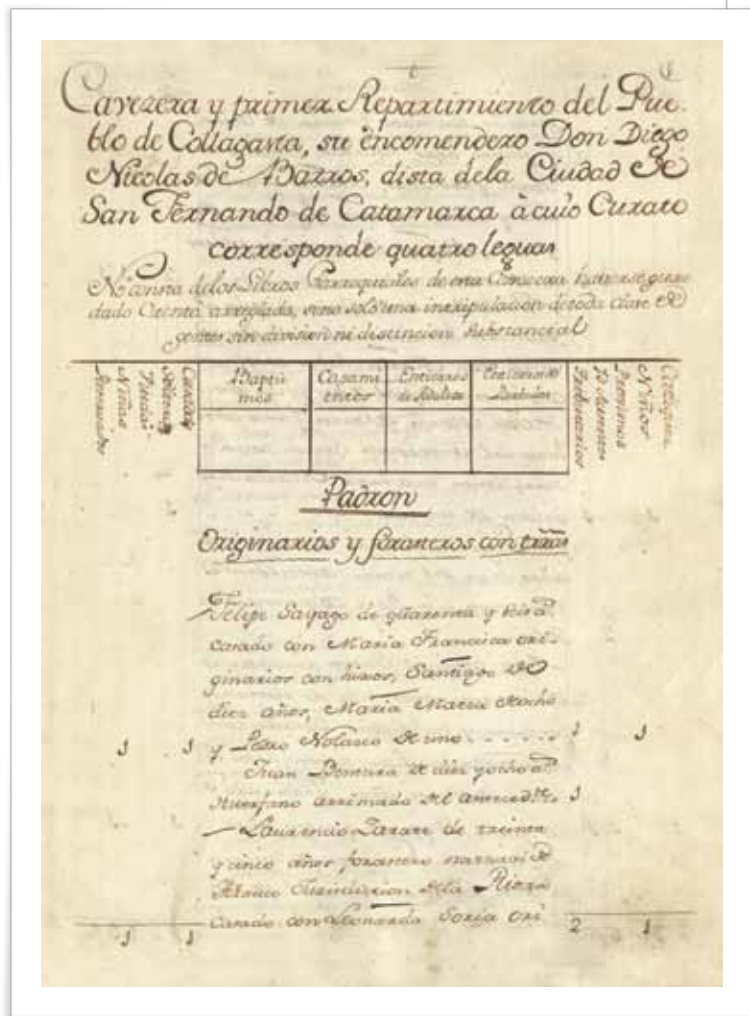 Cavezera y primer Repartimiento del Pue-
blo de Collagasta, su encomendero Don Diego
Nicolas de Barros, dista dela Ciudad de
San Fernando de Catamarca à cuio Curato
corresponde quatro leguas
No consta delos Libros Parroquiales de esta Cavezera haverse guar
dado Cuenta arreglada, sino solo una inxipulacion de toda clase de
gentes sin division ni distincion substancial
Reservados
Niñas
Viudas
Solteras
Casadas
Baptis
mos
Casami
entos
Entierros
de Adultos
Entierros de
Parbulos
Tributarios
Reservados
Niños
Padron
Originarios y foraneros con trras
Felipe Sayago de quarenta y seis as.
casado con Maria Francisca ori-
ginarios con hixos, Santiago de
diez años, Maria Mateа de ocho
y Pedro Nolasco de uno - - - - - 1 1
1 1
Juan Bentura de diez y ocho as.
Huerfano arrimado del antecedte. 1
Laurencio Zarate de treinta
y cinco años forastero natural de
Atauco Jurisdiccion dela Rioxa
Casado con Leonarda Soria ori
1 1 2 1